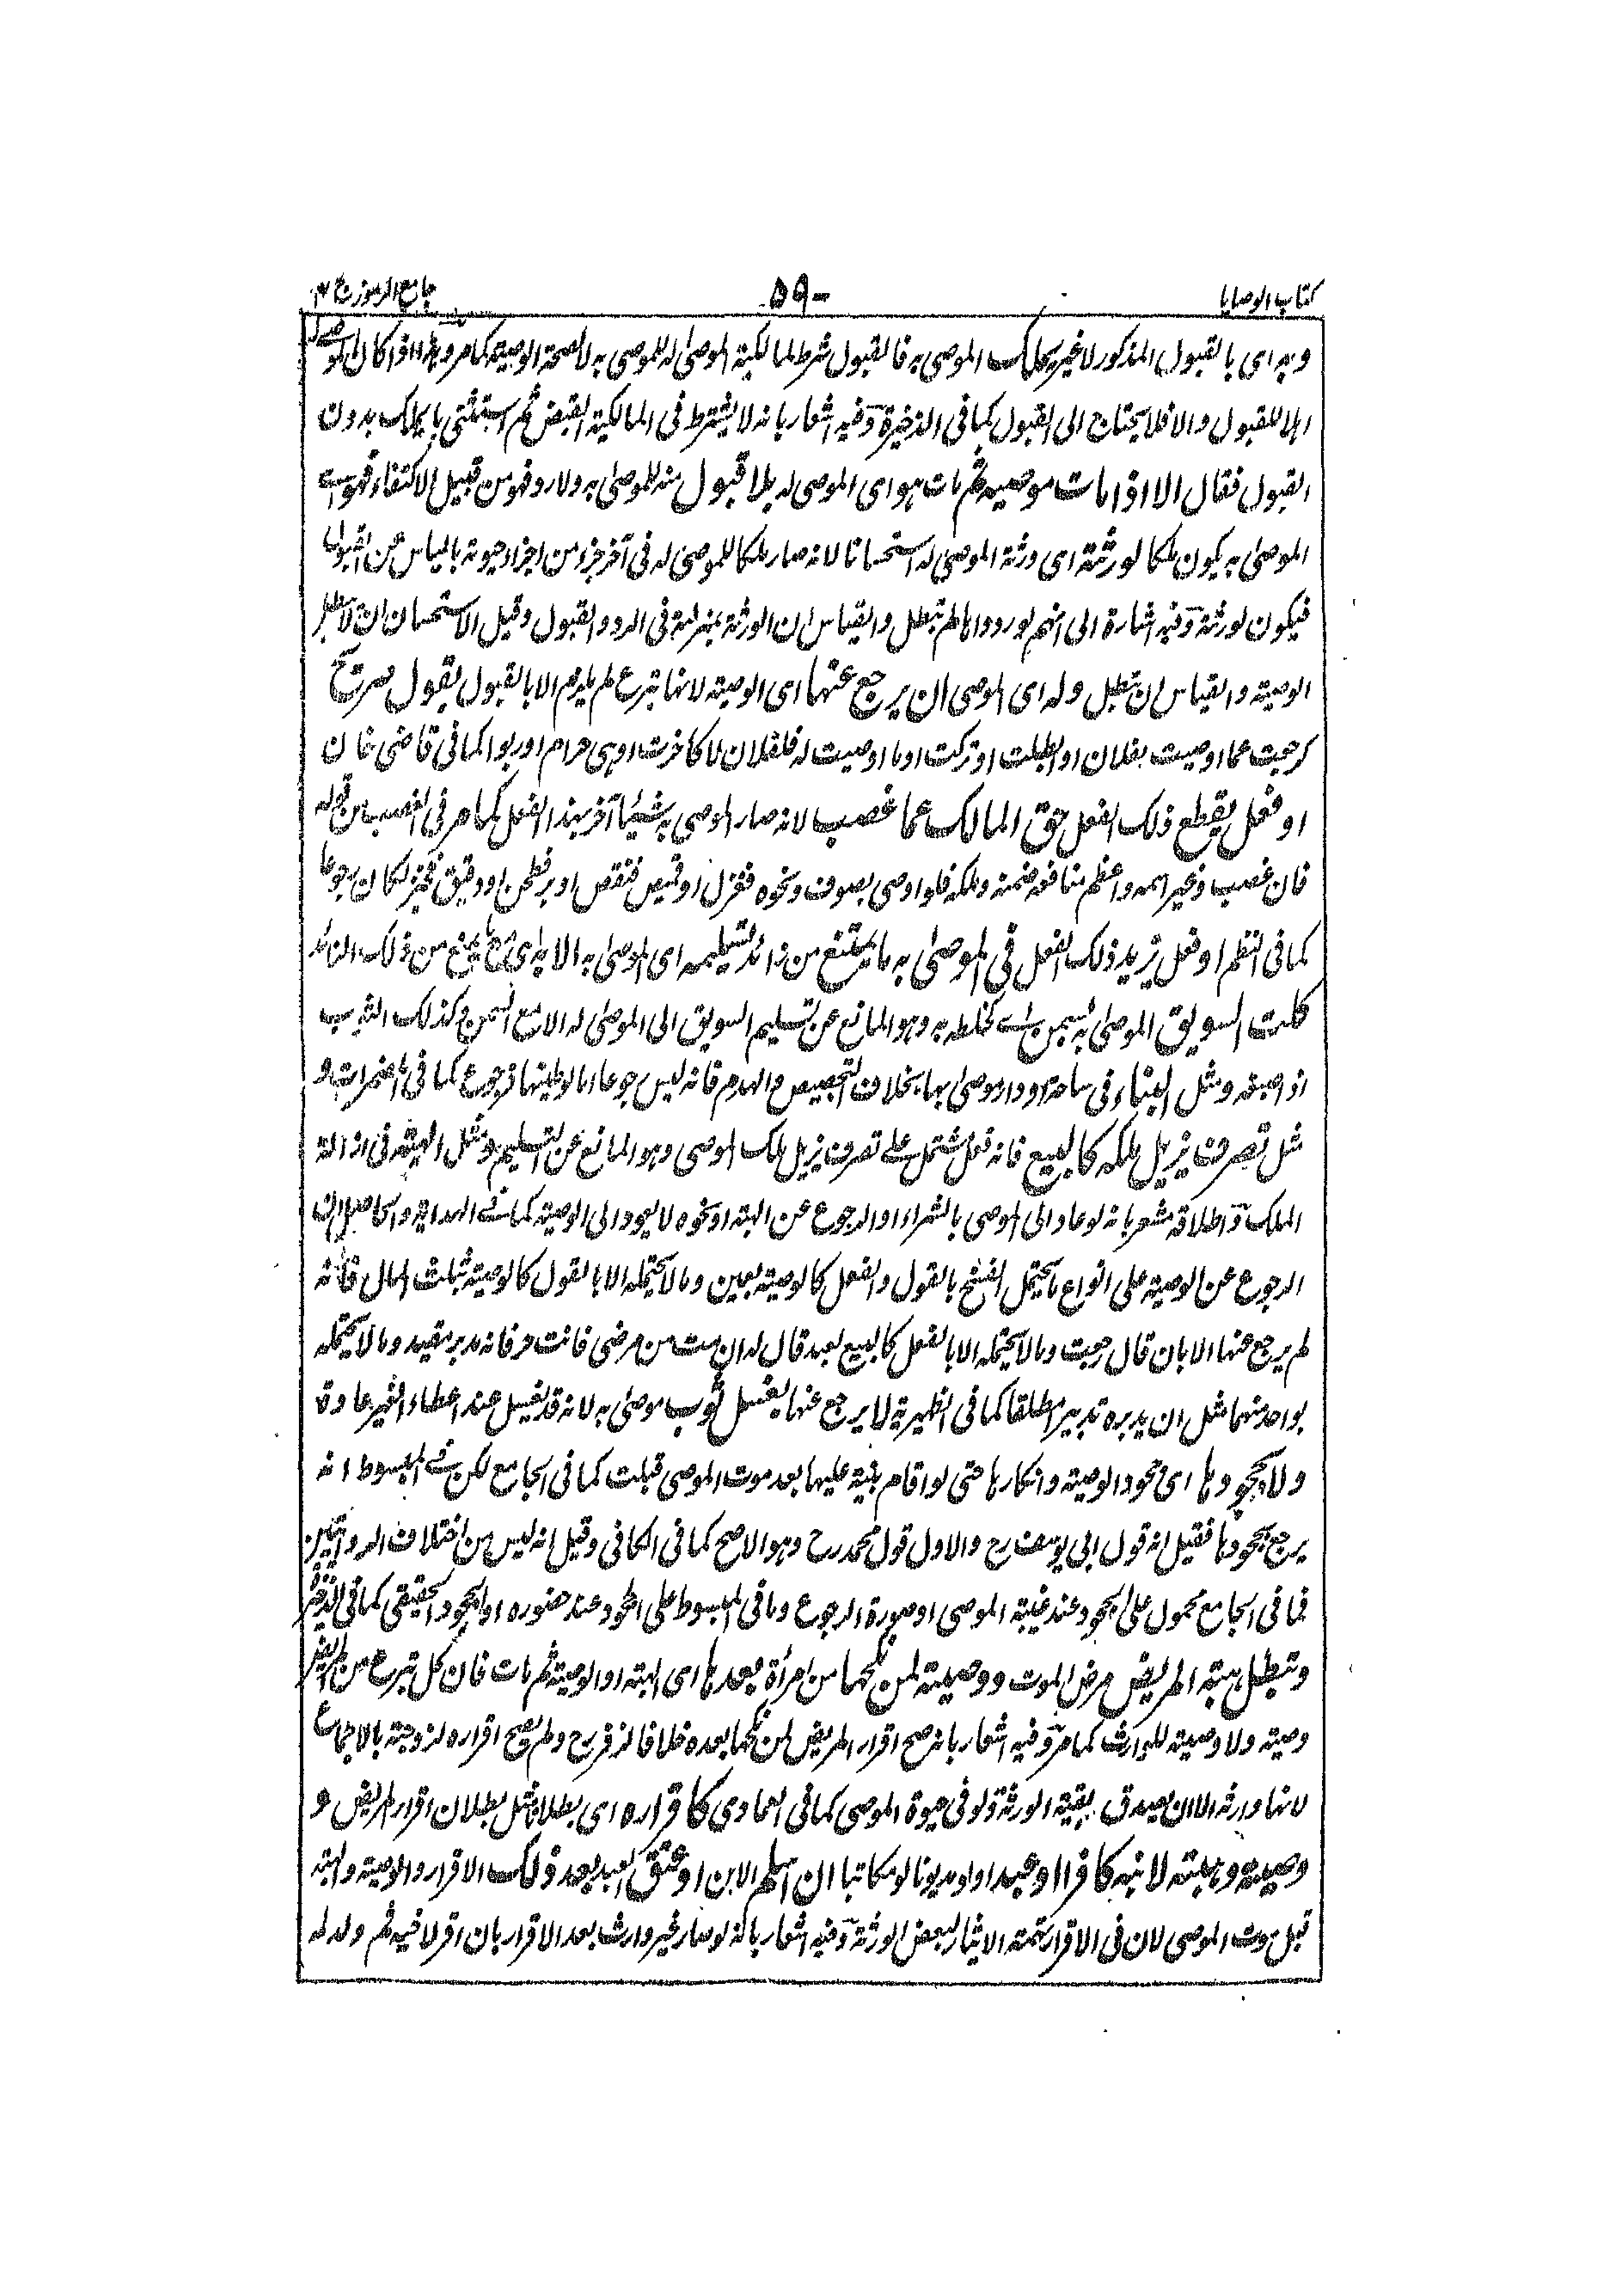 كتاب الوصايا
-٥٩
جامع الرموز ج ٢
وبه اى بالقبول المذكور لا غير يملك الموصى به فالقبول شرط لمالكية الموصىٰ له للموصى به لا لصحة الوصية كما مر وهذا اذا كان الموصى له
اهلا للقبول والا فلا يحتاج الى القبول كما فى الذخيرة وفيه اشعار بانه لا يشترط فى المالكية القبض ثم استثنى ما يملك بدون
القبول فقال الا اذا مات موصيه ثم مات هو اى الموصى له بلا قبول منه للموصىٰ به ولا رد فهو من قبيل الاكتفاء فهو اے
الموصىٰ به يكون ملكا لورثته اى ورثة الموصىٰ له استحسانا لانه صار ملكا للموصى له فى آخر جزء من اجزاء حيوته بالياس عن القبول
فيكون لورثته وفيه اشارة الى انهم لو ردوا لم تبطل والقياس ان الورثة بمنزلته فى الرد والقبول وقيل الاستحسان ان لا تبطل
الوصية والقياس ان تبطل وله اى للموصى ان يرجع عنها اى الوصية لانها تبرع لم يلزم الا بالقبول بقول صريح
كرجعت عما اوصيت بفلان او ابطلت او تركت او ما اوصيت له فلفلان لا كاخرت او هى حرام او ربوا كما فى قاضى خان
او فعل يقطع ذلك الفعل حق المالك عما غصب لانه صار الموصى به شيئا آخر بهذا الفعل كما مر فى الغصب من قوله
فان غصب وغير اسمه واعظم منافعه ضمنه وملكه فلو اوصى بصوف ونحوه فغزل او قميص فنقض او بر فطحن او دقيق فخبز لكان رجوعا
كما فى النظم او فعل يزيد ذلك الفعل فى الموصىٰ به ما يمتنع من زائد تسليمه اى الموصىٰ به الا به اى مع ما يمنع من ذلك الزائد
كلت السويق الموصىٰ به بسمن اے كخلطه به وهو المانع عن تسليم السويق الى الموصىٰ له الا مع السمن وكذلك الثوب
اذا صبغه ومثل البناء فى ساحة او دار موصىٰ بها بخلاف التجصيص والهدم فانه ليس رجوعا اما لو طينها فرجوع كما فى المضمرات و
مثل تصرف يزيل ملكه كالبيع فانه فعل مشتمل علے تصرف يزيل ملك الموصى وهو المانع عن التسليم ومثل الهبة فى ازالة
الملك واطلاقه مشعر بانه لو عاد الى الموصى بالشراء او الرجوع عن الهبة او نحوه لا يعود الى الوصية كما فے الهداية والحاصل ان
الرجوع عن الوصية على انواع ما يحتمل الفسخ بالقول والفعل كالوصية بعين وما لا يحتمله الا بالقول كالوصية بثلث المال فانه
لم يرجع عنها الا بان قال رجعت وما لا يحتمله الا بالفعل كالبيع لعبد قال له ان مت من مرضى فانت حر فانه مدبر مقيد وما لا يحتمله
بواحد منهما مثل ان يدبره تدبيرا مطلقا كما فى الظهيرية لا يرجع عنها بغسل ثوب موصىٰ به لانه قد يغسل عند اعطاء الغير عادة
ولا بجحودها اى جحود الوصية وانكارها حتى لو اقام بينة عليها بعد موت الموصى قبلت كما فى الجامع لكن فے المبسوط انه
يرجع بجحودها فقيل انه قول ابى يوسف رح والاول قول محمد رح وهو الاصح كما فى الكافى وقيل انه ليس من اختلاف الروايتين
فما فى الجامع محمول على الجحود عند غيبة الموصى او صورة الرجوع وما فى المبسوط على الجحود عند حضوره او الجحود الحقيقى كما فى الذخيرة
وتبطل هبة المريض مرض الموت ووصيته لمن نكحها من امرأة بعدها اى الهبة او الوصية ثم مات فان كل تبرع من المريض
وصية ولا وصية للوارث كما مر وفيه اشعار بانه صح اقرار المريض لمن نكحها بعده خلافا لزفر رح ولم يصح اقراره لزوجته بالاجماع
لانها وارثه الا ان يصدق بقية الورثة ولو فى حيوة الموصى كما فى العمادى كاقراره اى بطلانا مثل بطلان اقرار المريض و
وصيته وهبته لابنه كافرا او عبدا او مديونا لو مكاتبا ان اسلم الابن او عتق العبد بعد ذلك الاقرار والوصية والهبة
قبل موت الموصى لان فى الاقرار تهمة الايثار لبعض الورثة وفيه اشعار بانه لو صار غير وارث بعد الاقرار بان اقر لاخيه ثم ولد له